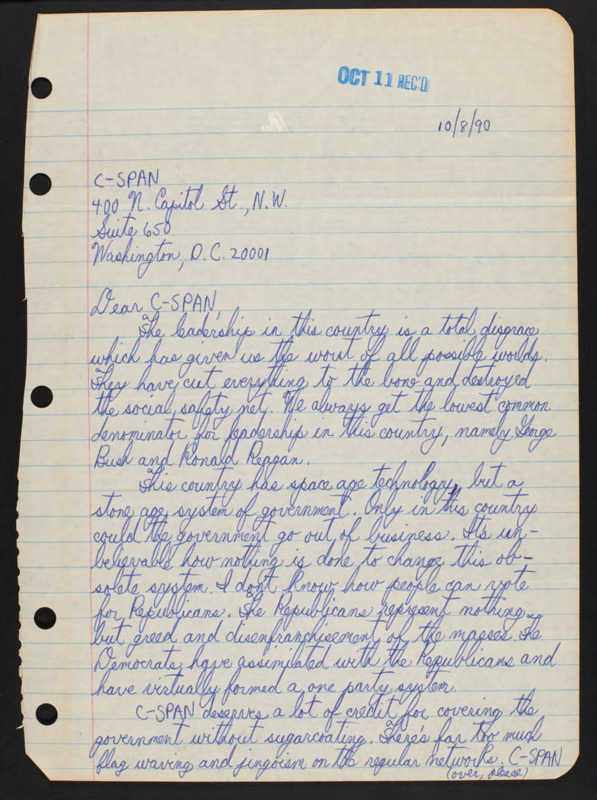 OCT 11 REC'D
10/8/90
C-SPAN
400 N. Capitol St., N.W.
Suite 650
Washington, D.C. 20001
Dear C-SPAN,
The leadership in this country is a total disgrace
which has given us the worst of all possible worlds.
They have cut everything to the bone and destroyed
the social safety net. We always get the lowest common
denominator for leadership in this country, namely George
Bush and Ronald Reagan.
This country has space age technology, but a
stone age system of government. Only in this country
could the government go out of business. Its un-
believable how nothing is done to change this ob-
solete system. I don't know how people can vote
for Republicans. The Republicans represent nothing
but greed and disenfranchisement of the masses. The
Democrats have assimilated with the Republicans and
have virtually formed a one party system.
C-SPAN deserves a lot of credit for covering the
government without sugarcoating. There's far too much
flag waving and jingoism on the regular networks. C-SPAN
(over, please)